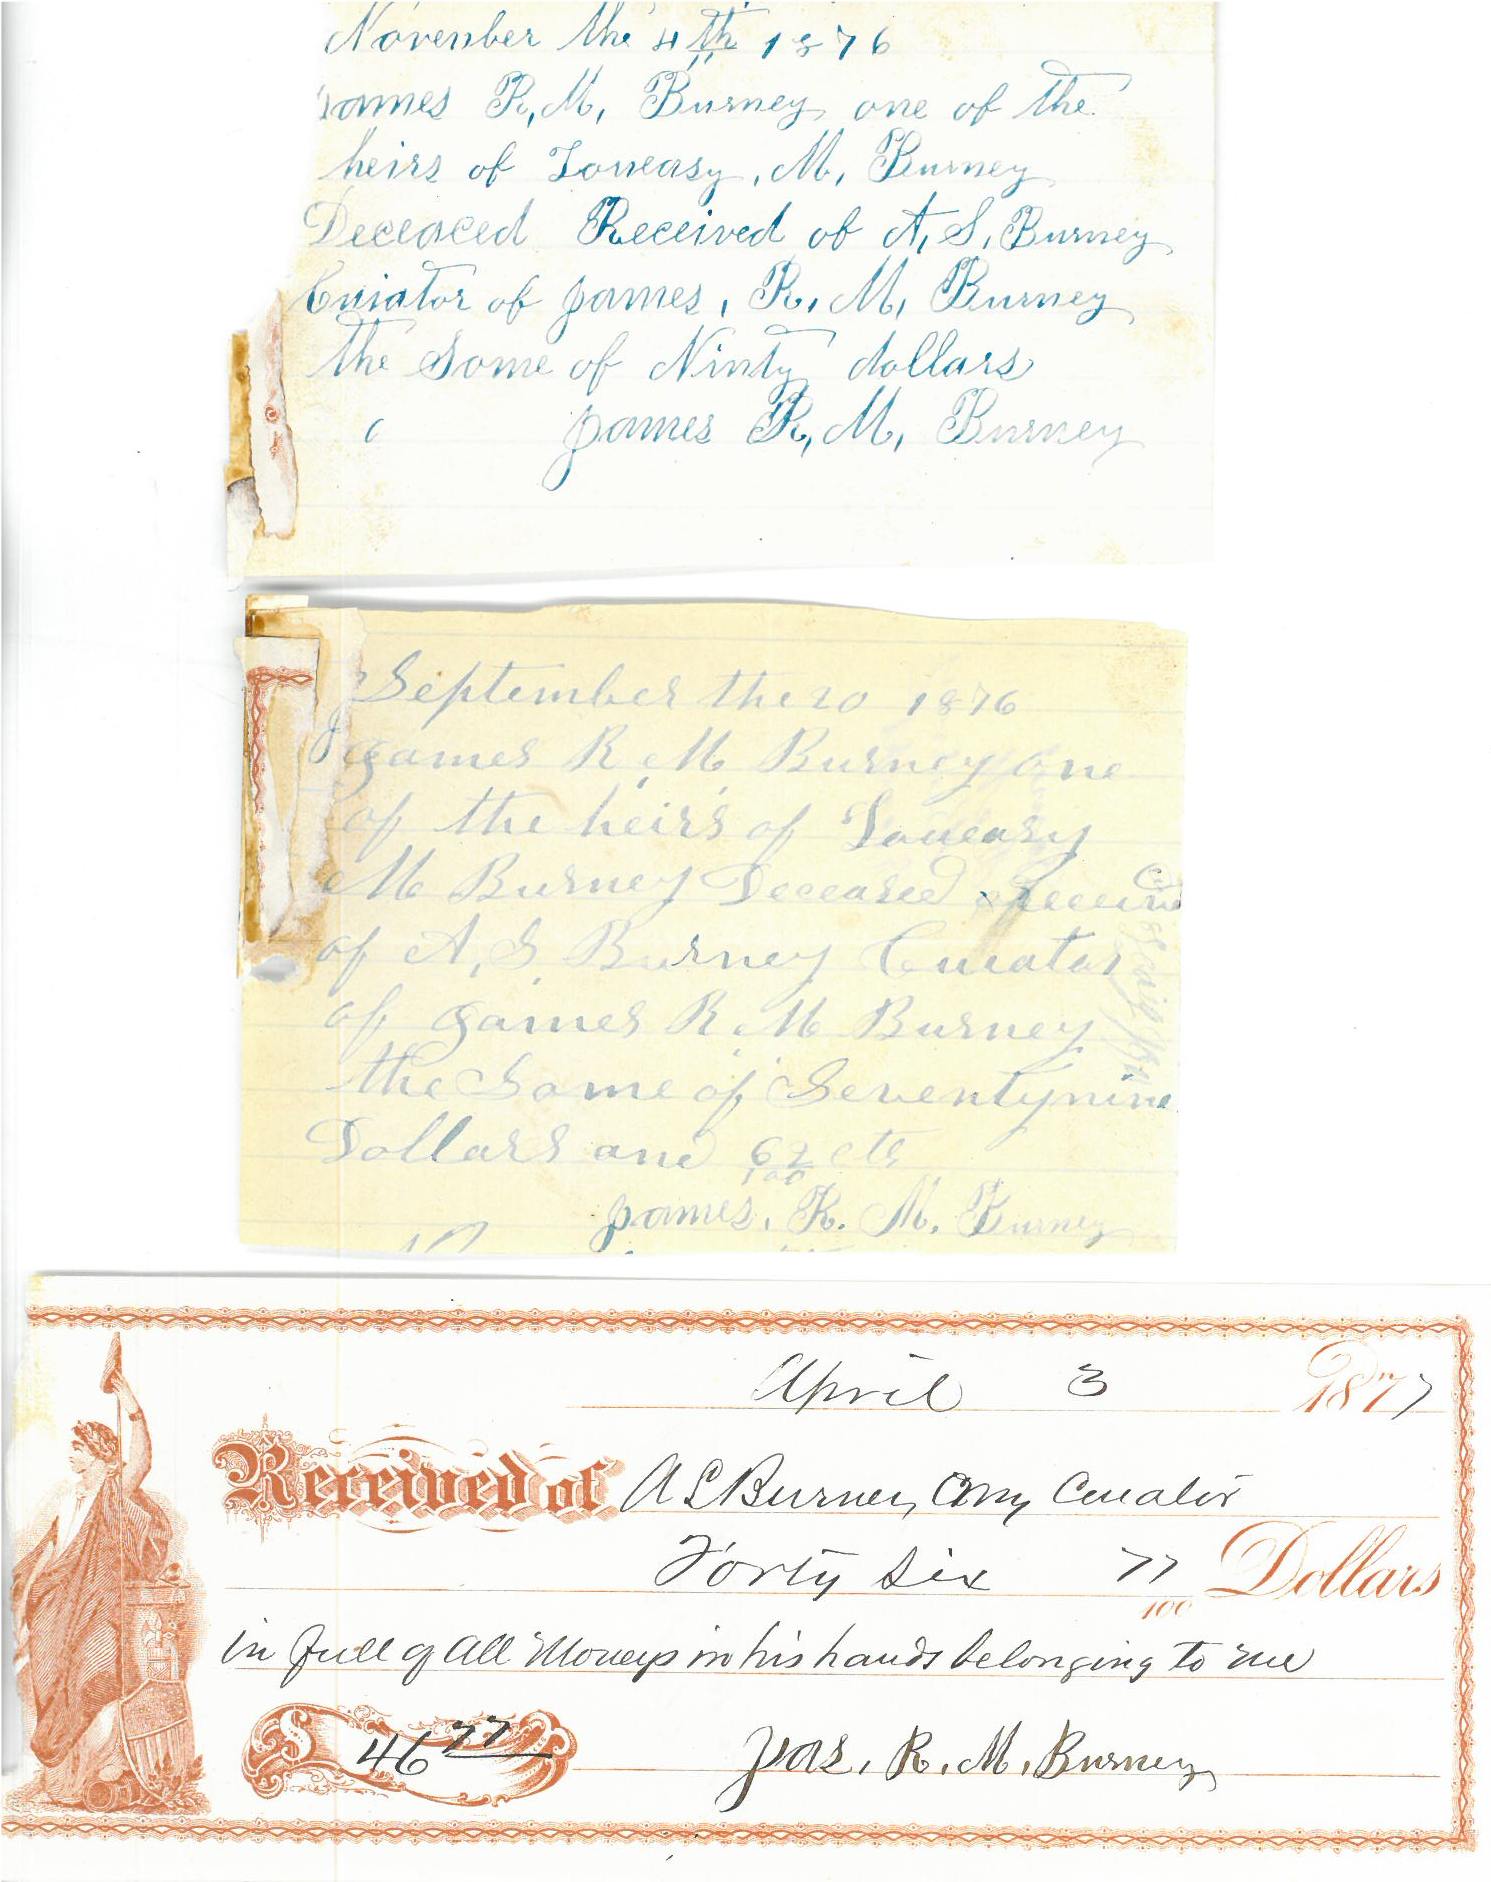 November the 4th 1876
James R, M, Burney one of the
heirs of Loueasy, M, Burney
Deceaced Received of A, S, Burney
Curator of James, R, M, Burney
the Some of Ninty dollars
James R, M, Burney
September the 20 1876
James R, M, Burney one
of the heirs of Loueasy
M Burney Deceased Received
of A, S, Burney Curator
of James R, M, Burney
the Some of Seventynine
Dollars and 62/100 cts
James, R. M. Burney
April 3 1877
Received of A S Burney my Curator
Forty Six 77/100 Dollars
in full of all Moneys in his hands belonging to me
$ 46 77
Jas, R, M, Burney